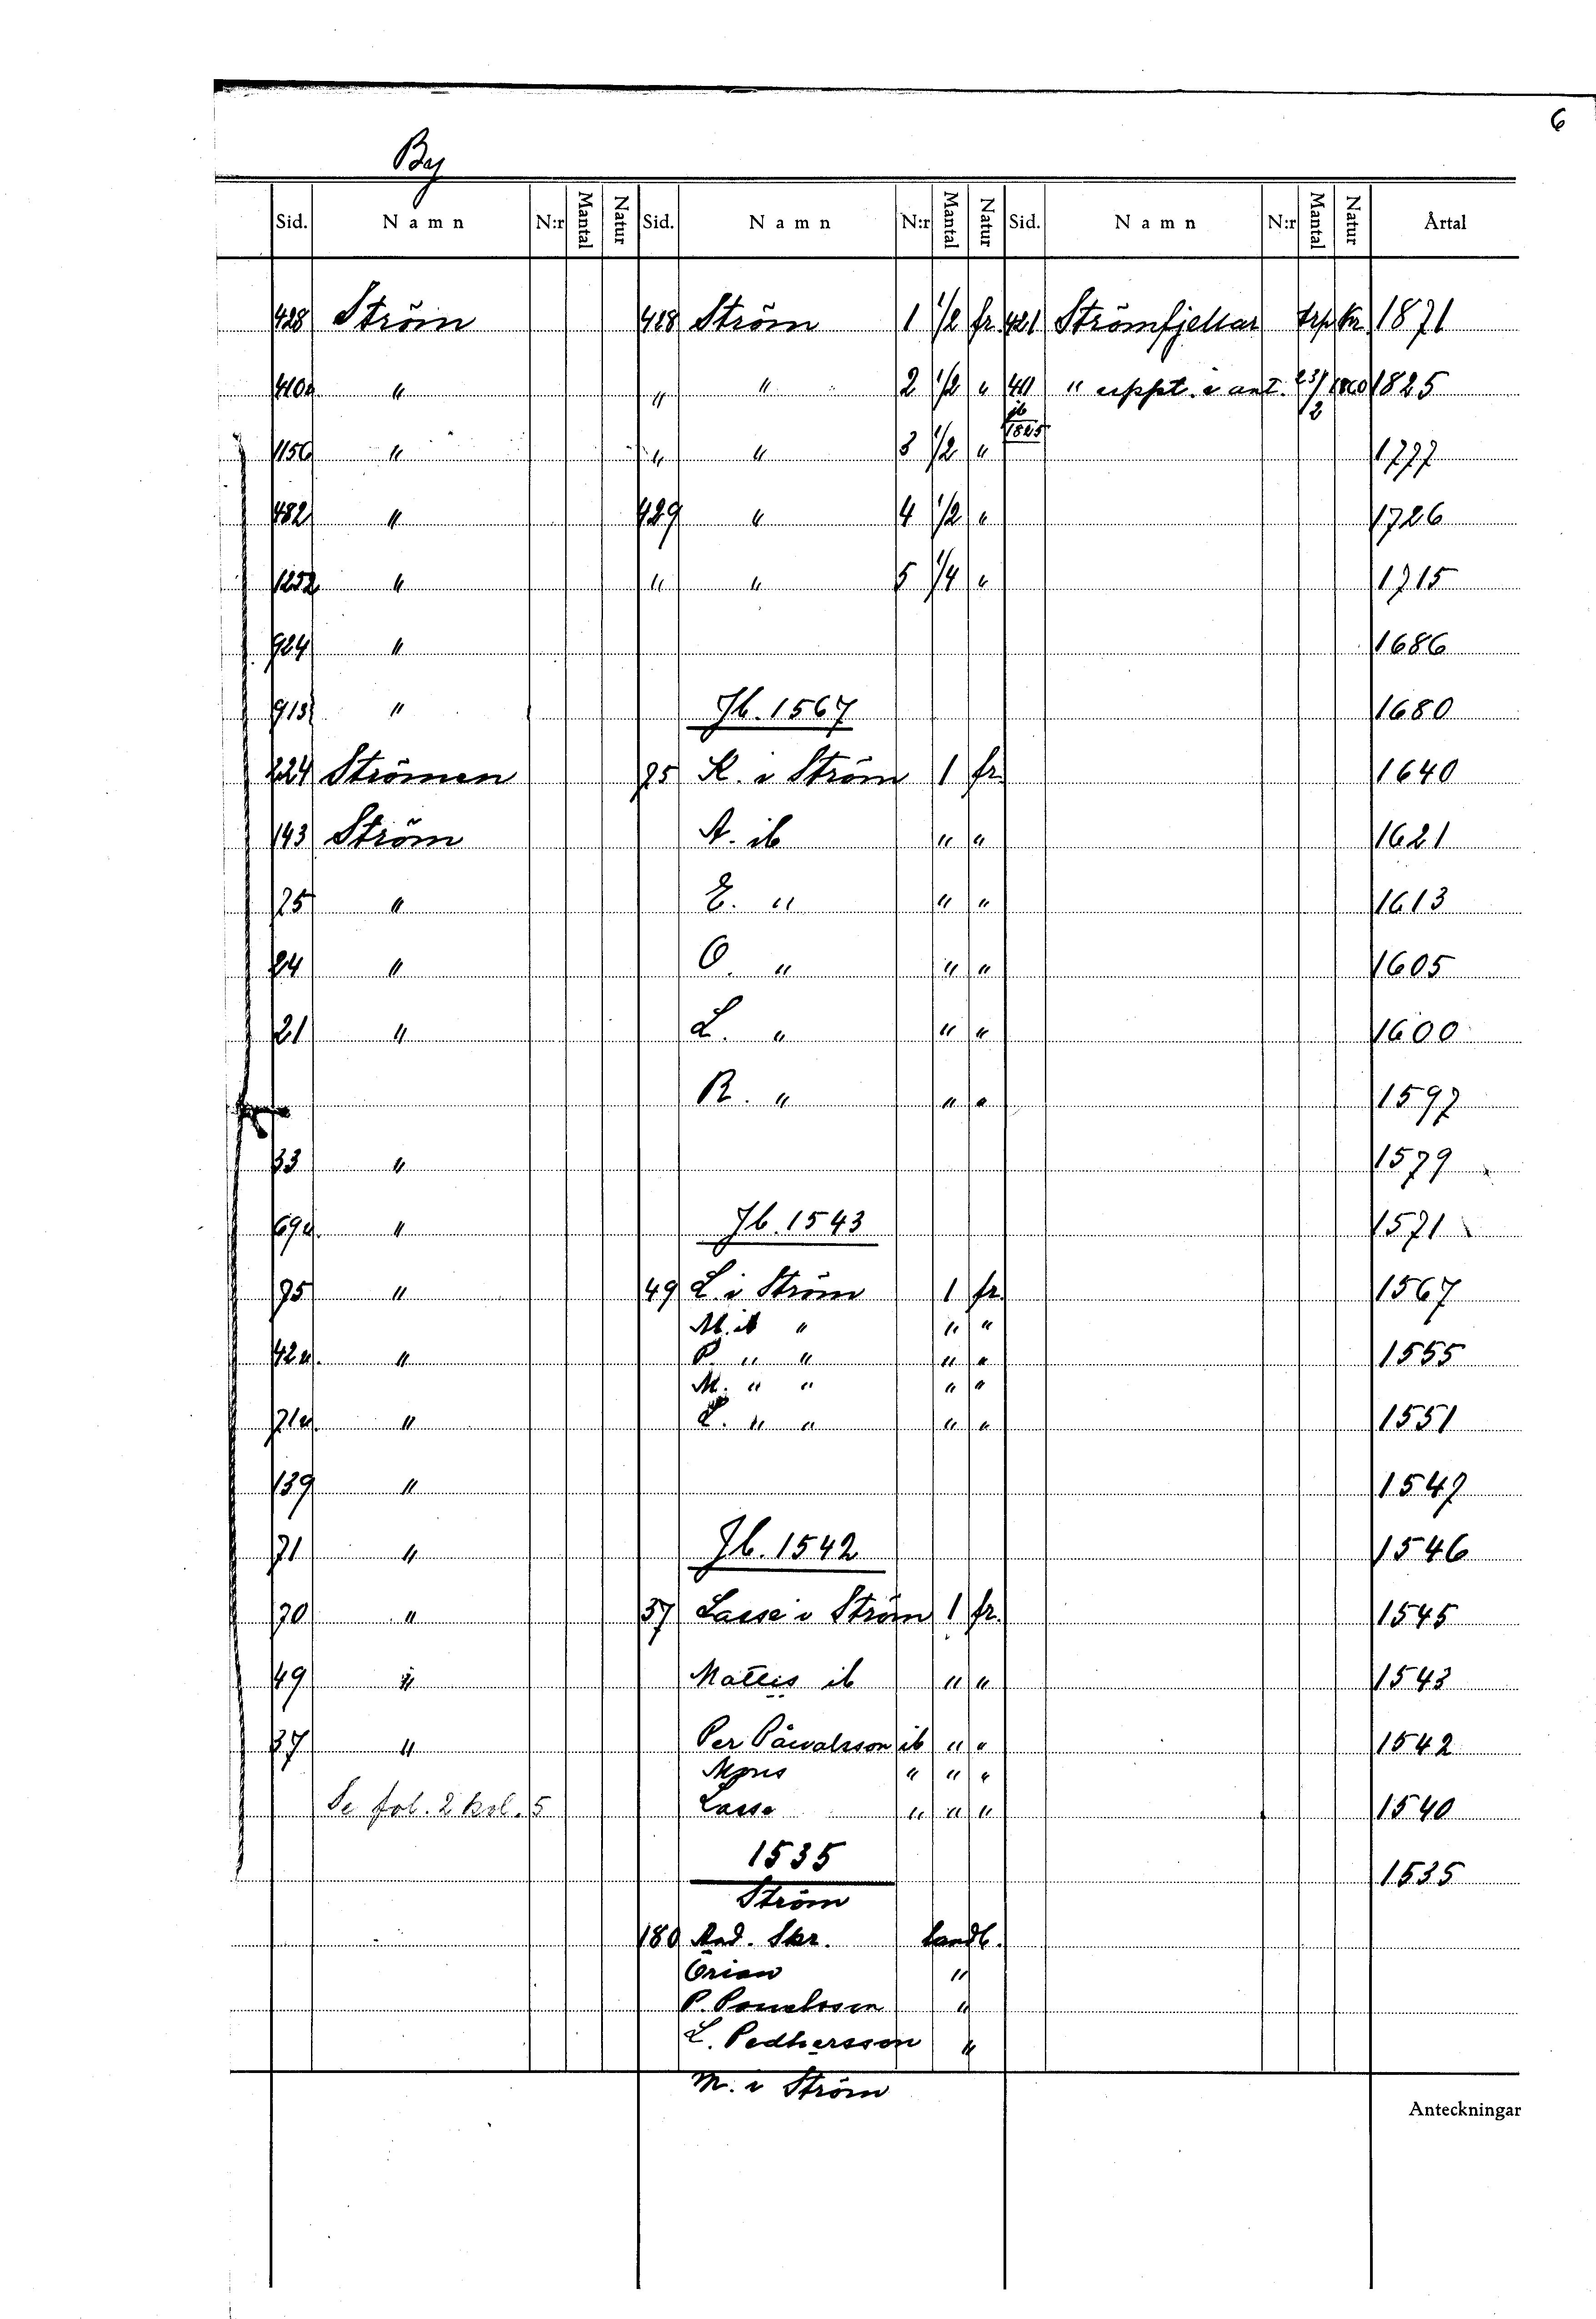 6
By
Sid. Namn N:r Mantal Natur Sid. Namn N:r Mantal Natur Sid. Namn N:r Mantal Natur Årtal
428 Ström 428 Ström 1 1/2 fr. 421 Strömfjellar trp Kr. 1871
410a " " " 2 1/2 " 411 " uppt. i ant. 23/12 1860 1825
jb 1825
1156 " " " 3 1/2 " 1777
482 " 429 " 4 1/2 " 1726
1252 " " " 5 1/4 " 1715
924 " 1686
913 " Jb. 1567 1680
224 Strömen 75 K. i Ström 1 fr. 1640
143 Ström A. ib " " 1621
25 " E. " " " 1613
24 " O. " " " 1605
21 " L. " " " 1600
R. " " " 1597
33 " 1579
69u. " Jb. 1543 1571
75 " 49 L. i Ström 1 fr. 1567
M. ib " " "
42u. " P. " " " " 1555
M. " " " "
71u. " L. " " " " 1551
139 " 1547
71 " Jb. 1542 1546
70 " 37 Lasse i Ström 1 fr. 1545
49 " Mattis ib " " 1543
37 " Per Påwalsson ib " " 1542
Mons " " "
Se fol. 2 kol. 5 Lasse " " " 1540
1535 1535
Ström
180 And. Skr. landb.
Örian "
P. Pouelsson "
L. Pedhersson "
M. i Ström
Anteckningar